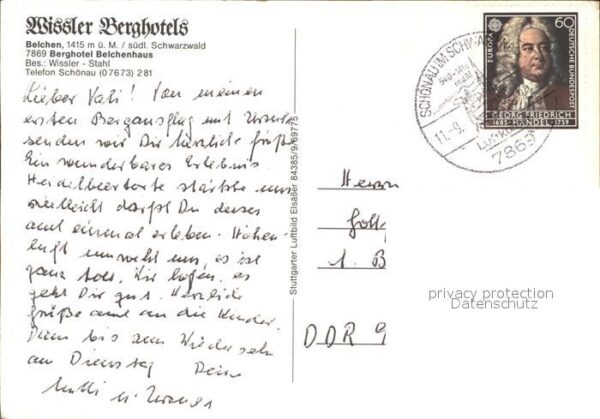 Wissler Berghotels
Belchen, 1415 m ü. M. / südl. Schwarzwald
7869 Berghotel Belchenhaus
Bes.: Wissler - Stahl
Telefon Schönau (07673) 281
Lieber Vati! Von meinem
ersten Bergausflug mit
senden wir Dir herzliche Grüße
Ein wunderbares Erlebnis.
Heidelbeertorte stärkte uns
vielleicht darfst Du dieses
auch einmal erleben. Höhen-
luft umweht uns, es ist
ganz toll. Wir hoffen, es
geht Dir gut. Herzliche
Grüße auch an die Kinder.
Dann bis zum Wiedersehn
am Dienstag Deine
Mutti u.
Stuttgarter Luftbild Elsäßer 84385/9/69775
SCHÖNAU IM SCHWARZW
11.-9.
Luftkurort
7869
EUROPA
60
DEUTSCHE BUNDESPOST
GEORG FRIEDRICH
1685 HÄNDEL 1759
Herrn
1. B
DDR 9
privacy protection
Datenschutz